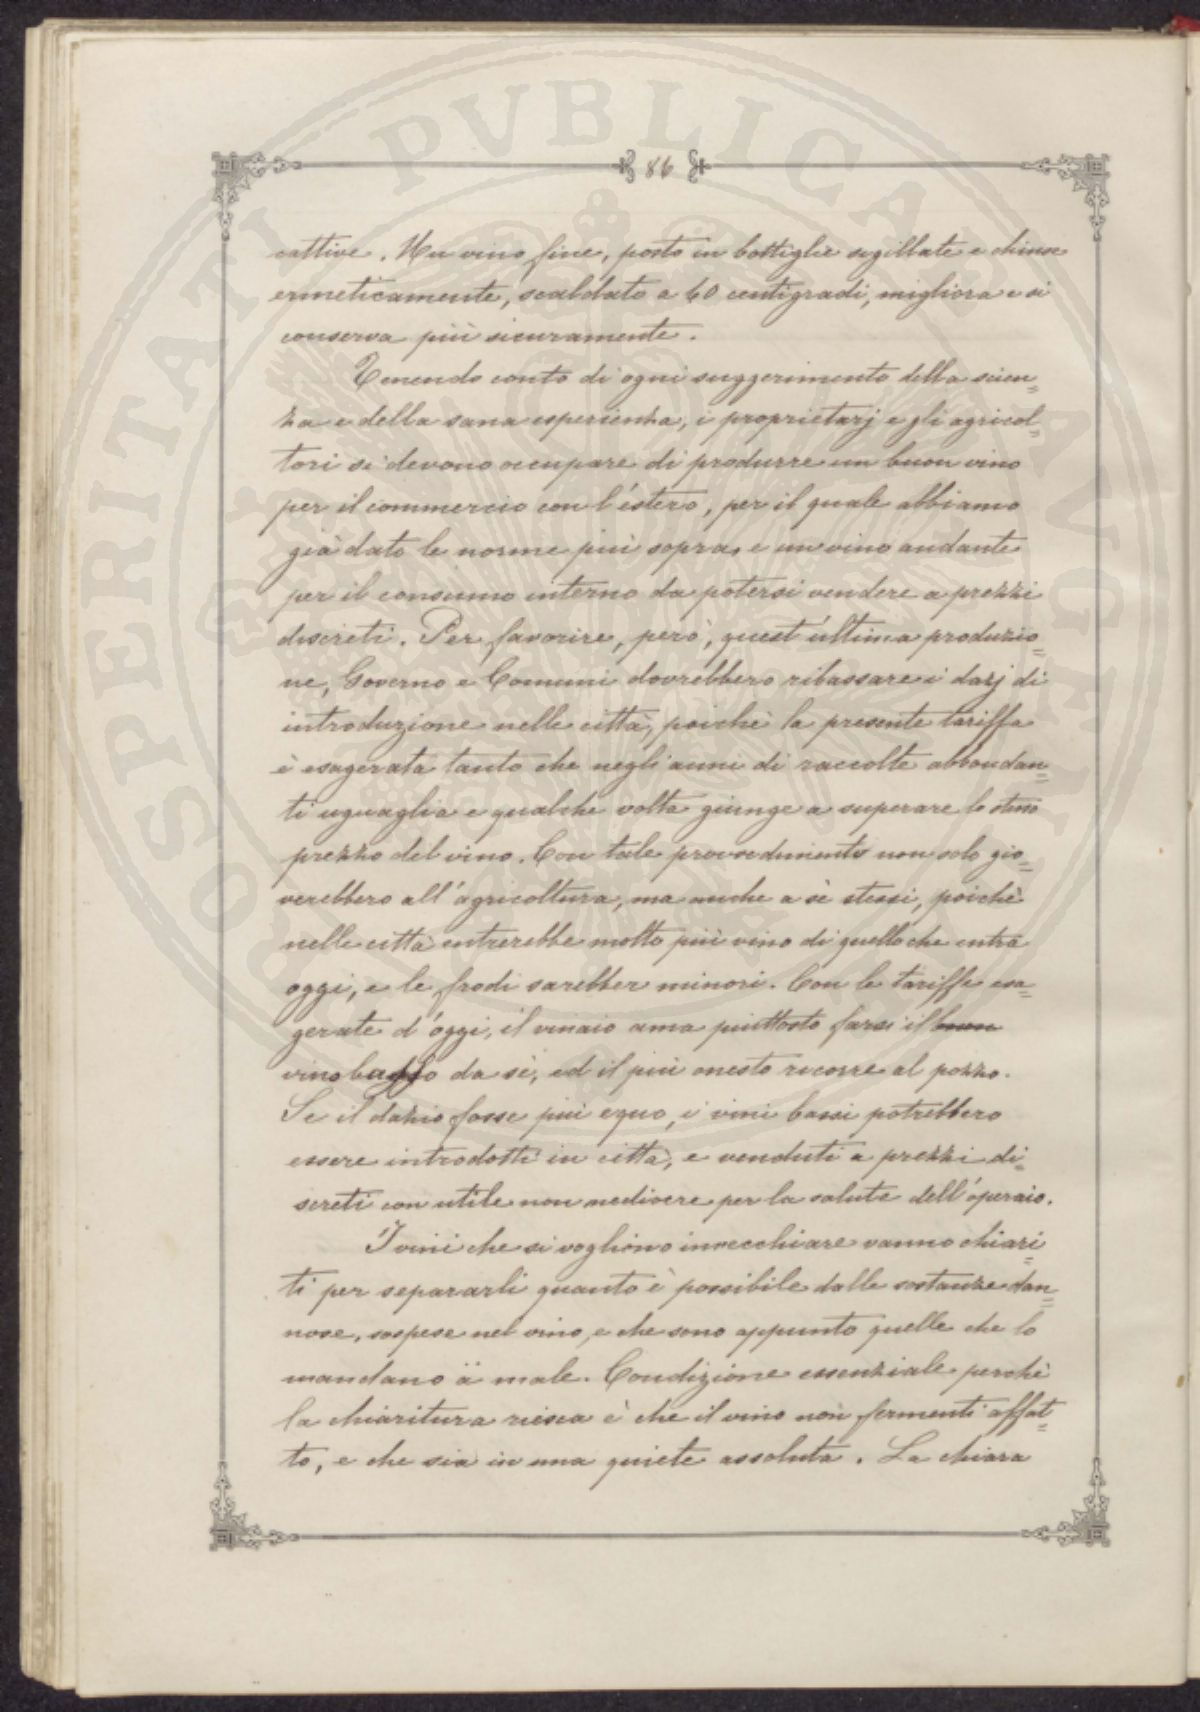 86
cattive. Un vino fine, posto in bottiglie sigillate e chiuse
ermeticamente, scaldato a 60 centigradi, migliora e si
conserva più sicuramente.
Tenendo conto di ogni suggerimento della scien=
za e della sana esperienza, i proprietarj e gli agricol=
tori si devono occupare di produrre un buon vino
per il commercio con l'estero, per il quale abbiamo
già dato le norme più sopra, e un vino andante
per il consumo interno da potersi vendere a prezzi
discreti. Per favorire, però, quest'ultima produzio=
ne, Governo e Comuni dovrebbero ribassare i dazj di
introduzione nelle città, poichè la presente tariffa
è esagerata tanto che negli anni di raccolte abbondan=
ti uguaglia e qualche volta giunge a superare lo stesso
prezzo del vino. Con tale provvedimento non solo gio=
verebbero all'agricoltura, ma anche a sè stessi, poichè
nelle città entrerebbe molto più vino di quello che entra
oggi, e le frodi sarebber minori. Con le tariffe esa=
gerate d'oggi, il vinaio ama piuttosto farsi il buon
vino basso da sè, ed il più onesto ricorre al pozzo.
Se il dazio fosse più equo, i vini bassi potrebbero
essere introdotti in città, e venduti a prezzi di=
screti con utile non mediocre per la salute dell'operaio.
I vini che si vogliono invecchiare vanno chiari=
ti per separarli quanto è possibile dalle sostanze dan=
nose, sospese nel vino, e che sono appunto quelle che lo
mandano a male. Condizione essenziale perchè
la chiaritura riesca è che il vino non fermenti affat=
to, e che sia in una quiete assoluta. La chiara
PROSPERITATI PVBLICAE AVGENDAE